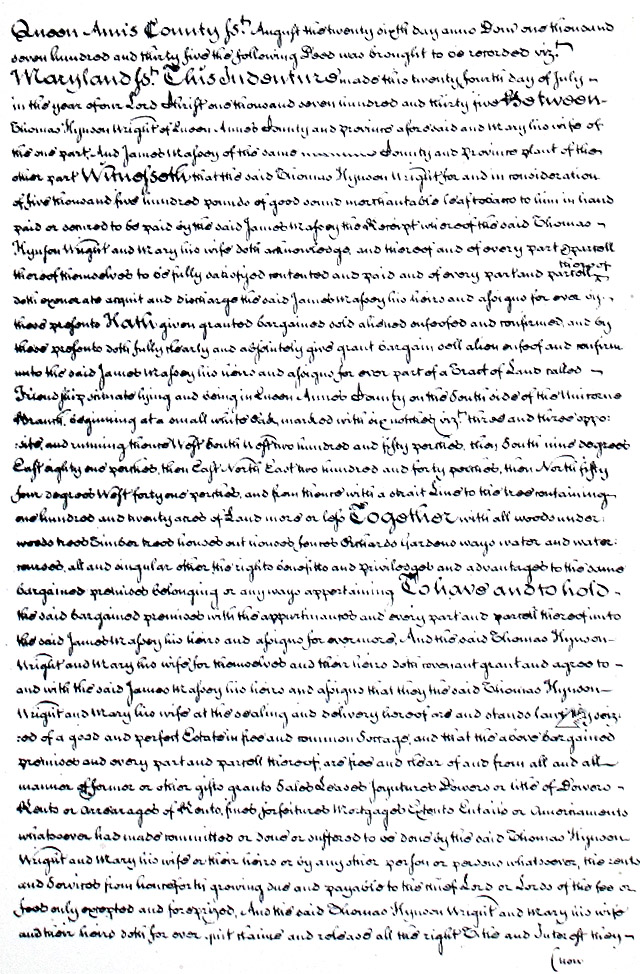 Queen Anns County fst. August the twenty sixth day anno Dom one thousand
seven hundred and thirty five the following Deed was brought to be recorded vizt
Maryland fst. This Indenture made this twenty fourth day of July
in the year of our Lord Christ one thousand seven hundred and thirty five Between
Thomas Hynson Wright of Queen Anne's County and province aforesaid and Mary his wife of
the one part And James Massey of the same County and Province plant of the
other part Witnesseth that the said Thomas Hynson Wright for and in consideration
of five thousand five hundred pounds of good sound merchantable leaf tobacco to him in hand
paid or secured to be paid by the said James Massey the Receipt whereof the said Thomas
Hynson Wright and Mary his wife doth acknowledge, and thereof and of every part & parcell
thereof themselves to be fully satisfyed contented and paid and of every part and parcell thereof
doth exonerate acquit and discharge the said James Massey his heirs and assigns for ever by
these presents Hath given granted bargained sold aliened enfeofed and confirmed, and by
these presents doth fully clearly and absolutely give grant bargain sell alien enfeof and confirm
unto the said James Massey his heirs and assigns for ever part of a Tract of Land called
Friendship situate lying and being in Queen Anne's County on the South side of the Unicorne
Branch, beginning at a small white Oak marked with six notches vizt three and three oppo:
site, and running thence West South West two hundred and fifty perches, then South nine degrees
East eighty one perches, then East North East two hundred and forty perches, then North fifty
four degrees West forty one perches, and from thence with a strait Line to the tree containing
one hundred and twenty acres of Land more or less Together with all woods under:
woods trees Timber trees houses out houses, fences Orchards Gardens ways water and water:
courses, all and singular other the rights benefits and priviledges and advantages to the same
bargained premises belonging or any ways appertaining To have and to hold
the said bargained premises with the appurtinances and every part and parcell thereof unto
the said James Massey his heirs and assigns for evermore, And the said Thomas Hynson
Wright and Mary his wife for themselves and their heirs doth covenant grant and agree to
and with the said James Massey his heirs and assigns that they the said Thomas Hynson
Wright and Mary his wife at the sealing and delivery hereof are and stands lawfully seiz:
:ed of a good and perfect Estate in fee and common Soccage, and that the above bargained
premises and every part and parcell thereof, are free and clear of and from all and all
manner of former or other gifts grants Sales Leases Joyntures Dowers or title of Dowers
Rents or Arrearages of Rents, fines forfeitures Mortgages Extents Entails or Amerciaments
whatsoever had made committed or done or suffered to be done by the said Thomas Hynson
Wright and Mary his wife or their heirs or by any other person or persons whatsoever, the rents
and Services from henceforth growing due and payable to the chief Lord or Lords of the fee or
fees only excepted and foreprized, And the said Thomas Hynson Wright and Mary his wife
and their heirs doth for ever quit claime and release all the right Title and Interest they
now